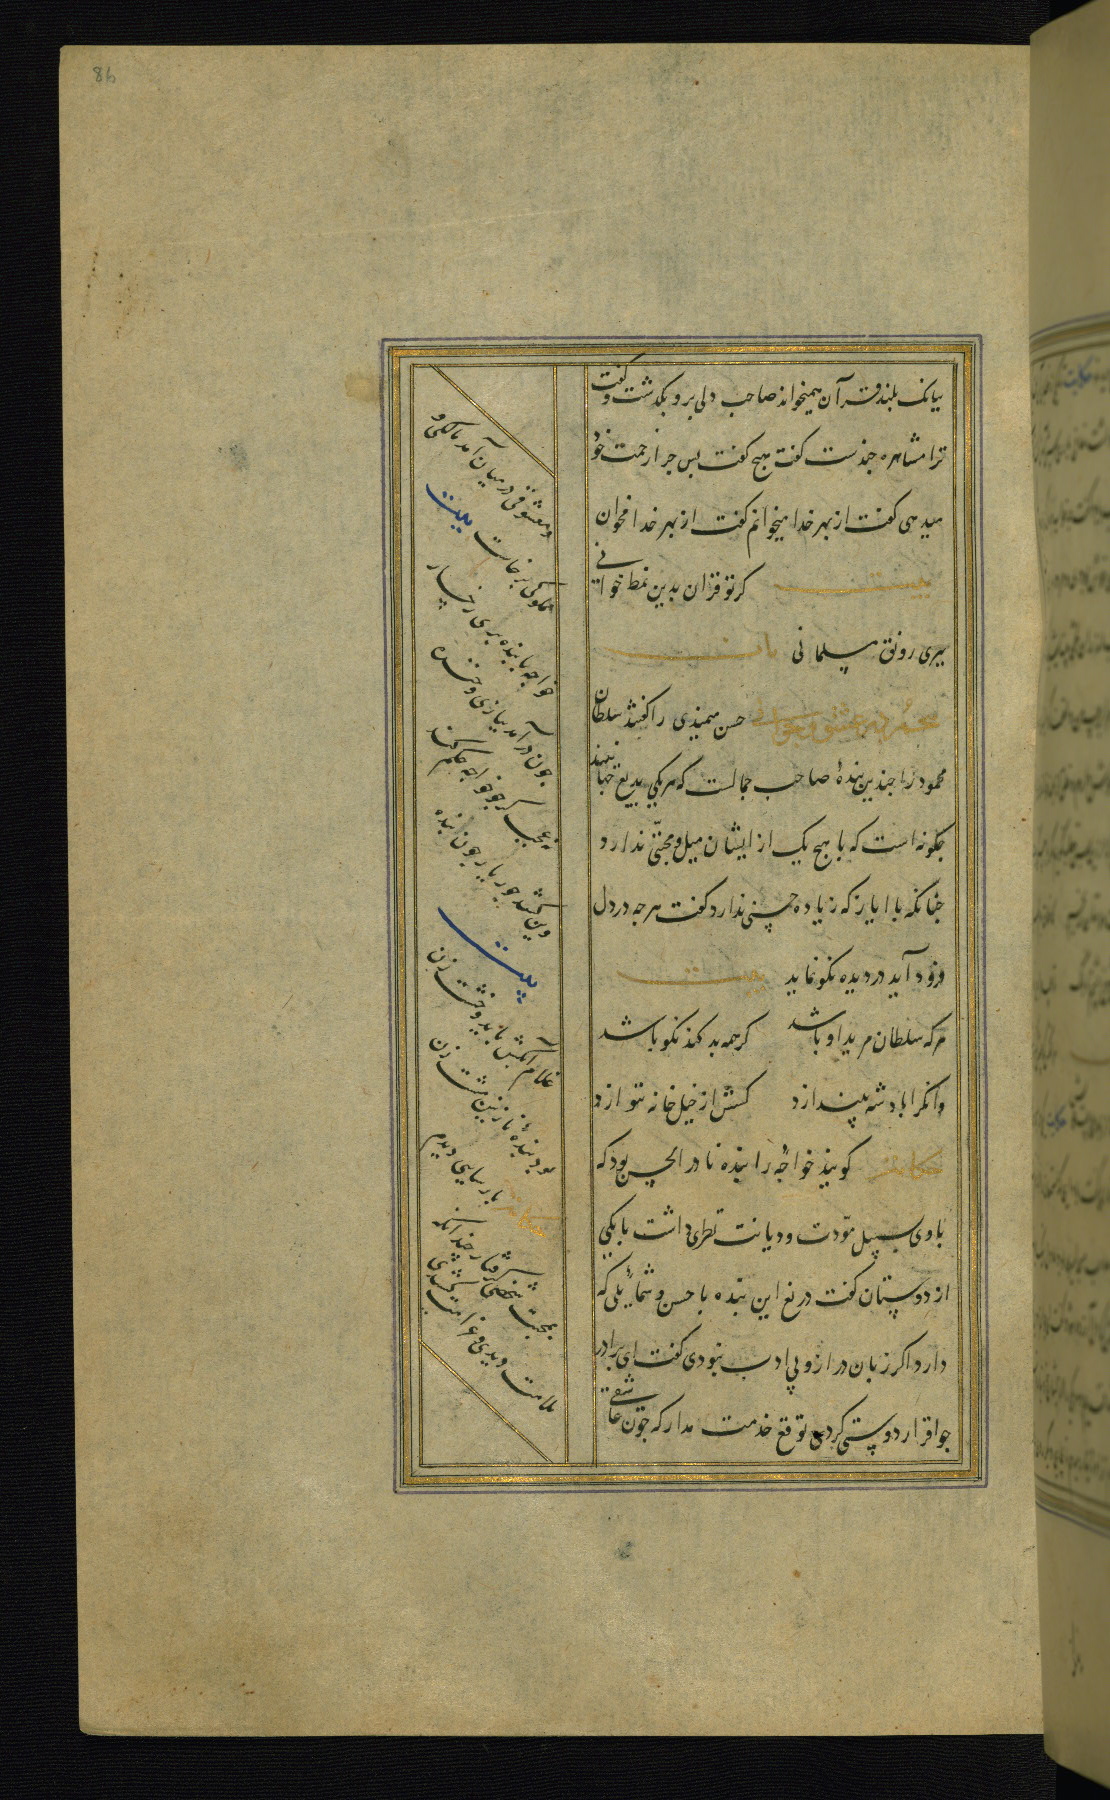 ببانک بلند قرآن همیخواند صاحب دلی برو بگذشت و گفت
ترا مشاهره چندست گفت هیچ گفت پس چرا زحمت خود
میدهی گفت از بهر خدا میخوانم گفت از بهر خدا مخوان
بیت کر تو قرآن بدین نمط خوانی
ببری رونق مسلمانی باب
پنجم در عشق و جوانی حسن میمندی را گفتند سلطان
محمود را چندین بنده صاحب جمالست که هر یکی بدیع جهانند
چگونه است که با هیچ یک از ایشان میل و محبتی ندارد
چنانکه با ایاز که زیاده حسنی ندارد گفت هر چه در دل
فرود آید در دیده نکو نماید بیت
هر که سلطان مرید او باشد کر همه بد کند نکو باشد
وانکرا پادشه بیندازد کسش از خیل خانه ننوازد
حکایت گویند خواجه را بنده نادر الحسن بود که
با وی بسبیل مودت و دیانت نظری داشت با یکی
از دوستان گفت دریغ این بنده با حسن و شمایلی که
دارد اگر زبان دراز و بی ادب نبودی گفت ای برادر
چو اقرار دوستی کردی توقع خدمت مدار که چون عاشقی
و معشوقی در میان آمد مالکی و
مملوکی برخاست بیت
خواجه با بنده پری رخسار
چون در آمد ببازی و خنده
نه عجب کر چو خواجه حکم کند
وین کشد جور یار چون بنده
بیت
غلام آبکش باید و خشت زن
بود بنده نازنین مشت زن
حکایت پارسایی دیدم
بمحبت شخصی گرفتار چندانکه
ملامت دیدی و غرامت کشیدی
86